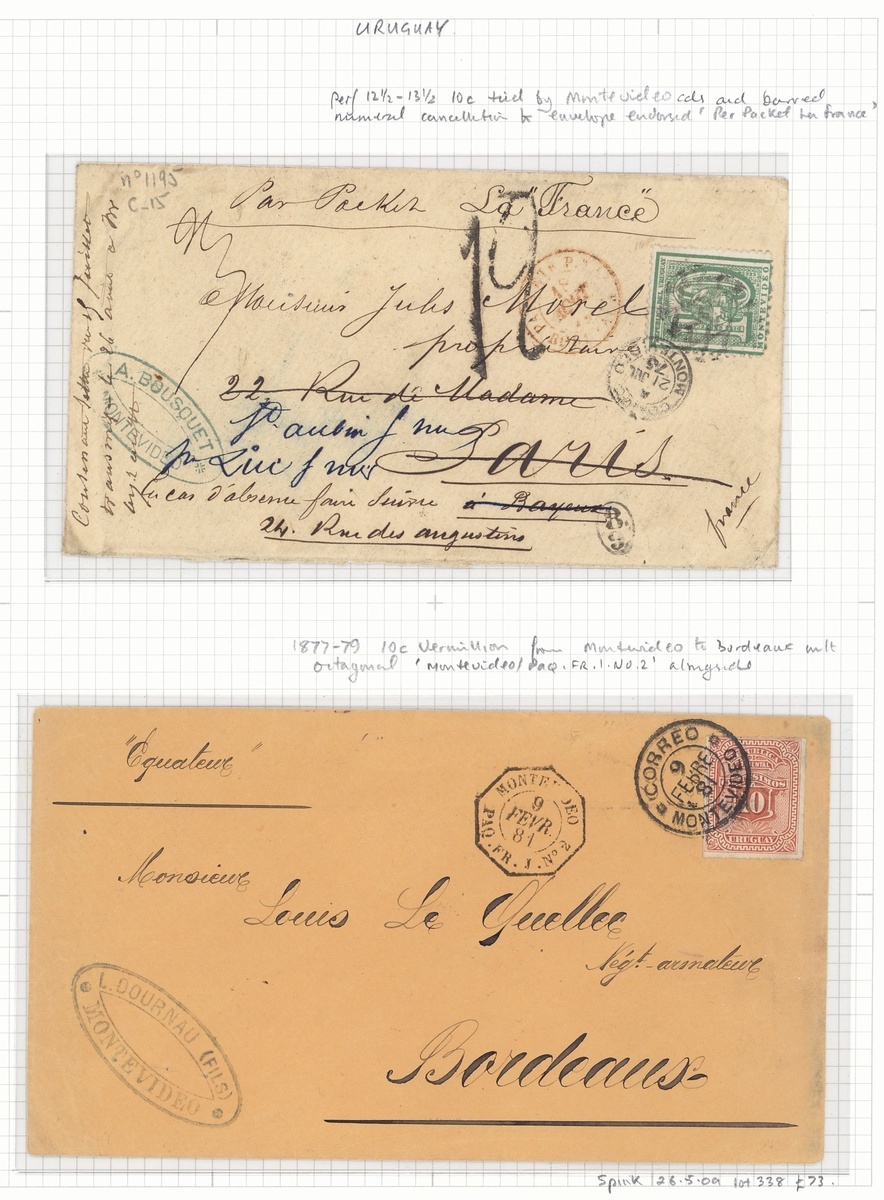 URUGUAY
perf 12½-13½ 10c tied by Montevideo cds and barred
numeral cancellation to envelope endorsed 'Per Packet La France'
nº 1195
C-15
Par Packet La "France"
12
Monsieur Jules Morel
propriétaire
22, Rue de Madame
St aubin s/ mer
par Luc s/ mer
Paris
En cas d'absence faire suivre à Bayeux
24. Rue des augustins
france
A. BOUSQUET
MONTEVIDEO
MONTEVIDEO
21 JUL
75
B.
S
1877-79 10c Vermillion from Montevideo to Bordeaux with
octagonal 'Montevideo/Paq.FR.J.No.2' alongside
"Équateur"
MONTEVIDEO
9
FEVR.
81
PAQ.FR.J.Nº2
CORREO
9
FEBRE
81
MONTEVIDEO
10
URUGUAY
Monsieur
Louis Le Quellec
Négt-armateur
Bordeaux
L. DOURNAU (FILS)
MONTEVIDEO
Spink 26.5.09 lot 338 £73.